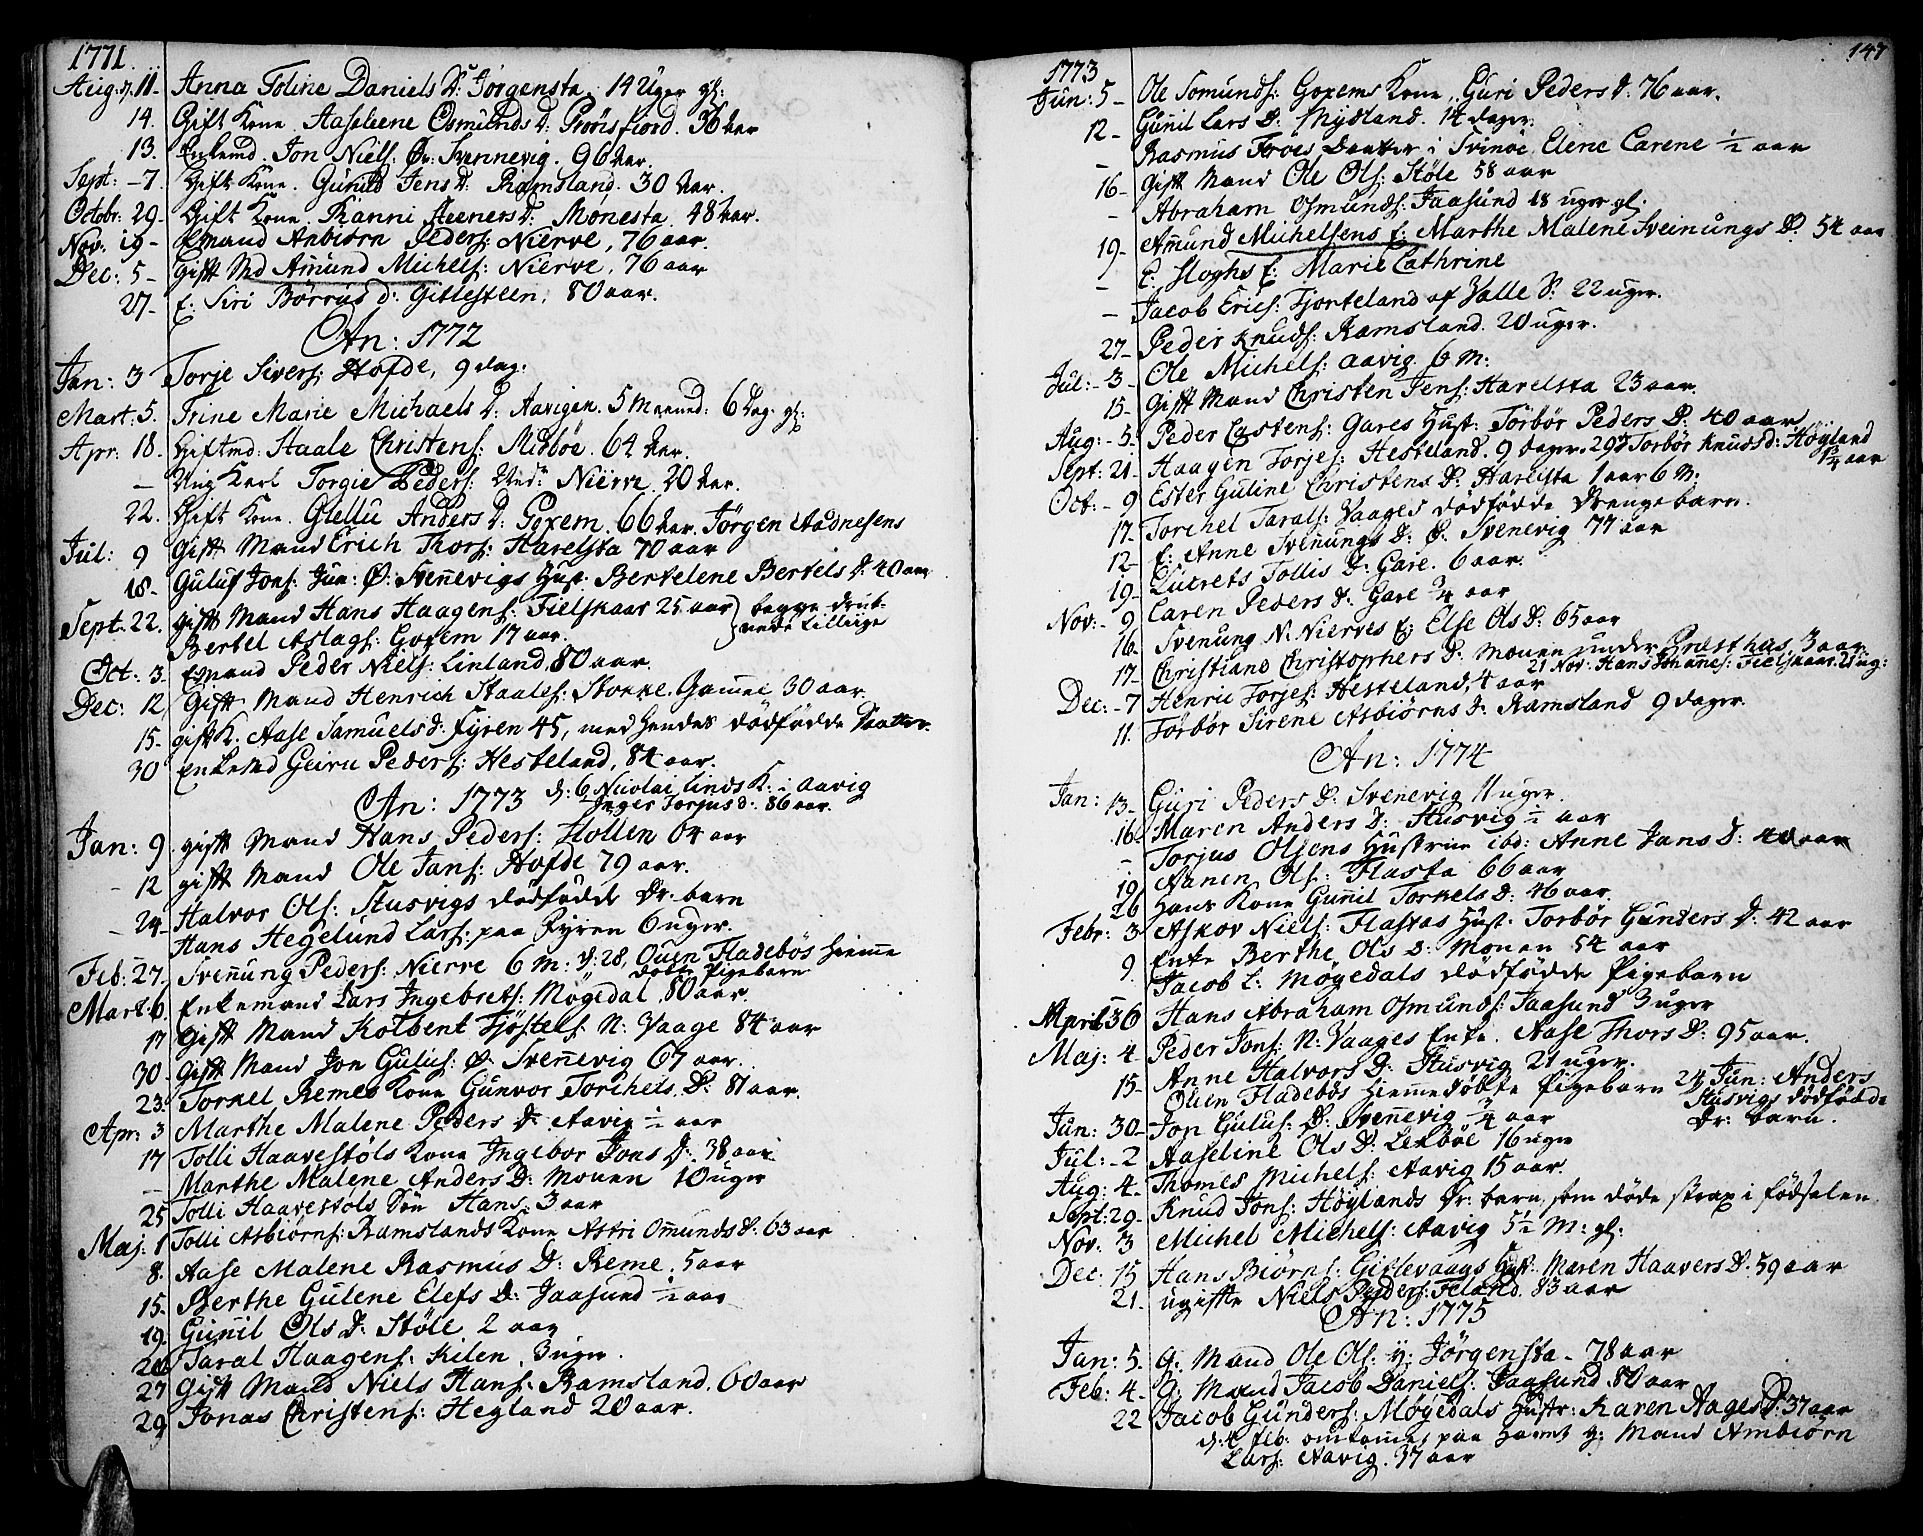 1771.
Aug: d. 11 - Anna Toline Daniels D: Jørgensta. 14 Uger gl:
14. Gift Kone. Aaseleene Osmunds D: Prøisfiord. 36 Aar
13. Enkemd. Jon Niels: Ø: Svennevig. 96 Aar.
Sept: - 7. Gift Kone. Gunild Jens D: Ramsland. 30 Aar.
Octobr: 29 - Gift Kone. Ranni Reeners D: Mønesta. 48 Aar.
Nov. 19 - Emand Anbiørn Peders: Nierve, 76 aar.
Dec: 5 - gift Md Amund Michels: Nierve, 76 aar
27 - E: Siri Børrus d: Gitlesteen, 80 aar.
An: 1772
Jan: 3 Torje Sivers: Hofde, 9 dag:
Mart: 5. Trine Marie Michaels D: Aavigen. 5 Maaned: 6 Dag. gl:
Apr: 18. Giftmd: Staale Christens: Midbøe. 64 Aar.
- Ung Karl Torgie Peders: Ned: Nierve. 20 Aar.
22. Gift Kone. Gletlu Anders D: Goxem. 66 Aar. Jørgen Aadnesens
Jul: 9 Gift Mand Erich Thors: Harelsta 70 aar
18. Guluf Jons: Jun: Ø: Svenevigs Hust. Bertelene Bertels D: 40 aar
Sept. 22. gift Mand Hans Haagens: Fielskaar 25 aar } begge druk-
Bertel Aslags: Goxem 17 aar. } nede tilliige
Oct: 3. Emand Peder Niels: Linland, 80 aar.
Dec: 12 Gift Mand Henrich Staales: Stokke. Gamel 30 aar.
15 - gift K. Aase Samuels d: Fyren 45, med hendes dødfødde Daatter.
30 Enkemd Geiru Peders: Hesteland, 84 aar.
An: 1773 d: 6 Nicolai Linds K: i Aavig
Inger Torjus d: 86 aar.
Jan: 9. gift Mand Hans Peders: Hollen 64 aar
- 12 gift Mand Ole Jans: Hofde 79 aar.
- 24 - Halvor Ols: Stusvigs dødfødde Dr: barn
Hans Hegelund Lars: paa Fyren 6 uger.
Feb: 27. Svenung Peders: Nierve 6 M: d: 28, Ouen Fladebøs hiemme
døbte Pigebarn
Mart: 6. Enkemand Lars Ingebrets: Møgedal, 80 aar.
17 Gift Mand Kolbent Fjøstels: N: Vaage 84 aar
30. Gift Mand Jon Gulus: Ø: Svenevig 67 aar.
23. Torkel Remes Kone Gunvor Torchels D: 81 aar.
Apr: 3 Marthe Malene Peders D: Aavig ½ aar
17 Tolli Haavestøls Kone Ingebor Jons D: 38 aar.
- Marthe Malene Anders D: Monen 10 uger
25 Tolli Haavestøls Søn Hans. 3 aar
Maj: 1 Tolli Asbiørns: Ramslands Kone Astri Omunds D: 63 aar
8. Aase Malene Rasmus D: Reme. 5 aar
15. Berthe Gulene Elefs D: Jaasund ½ aar
19. Gunnil Ols D: Støle 2 aar
20 Taral Haagens: Kilen. 3 uger.
27 Gift Mand Niels Hans: Ramsland. 60 aar
29 Jonas Christens: Hegland 20 aar.
147
1773
Jun: 5 - Ole Somunds: Goxems Kone, Guri Peders D: 76 aar.
12 - Gunil Lars D: Skydland. 14 dager.
- Rasmus Foroes Daatter i Svinøe, Elene Carene ½ aar
16 - Gift Mand Ole Ols: Støle 58 aar
- Abraham Osmunds: Jaasund 18 uger gl:
19 - Amund Michelsens E: Marthe Malene Sveinungs D: 54 aar
- E: Floghs E: Marie Cathrine
- Jacob Erics: Fjorteland af Valle S: 22 uger.
27 - Peder Knuds: Ramsland. 20 uger.
Jul: - 3 - Ole Michels: Aavig 6 M:
15 - Gift Mand Christen Jens: Harelsta 23 aar.
Aug: - 5. Peder Castens: Gares Hust: Torbør Peders D: 40 aar
Sept: 21. Haagen Torjes: Hesteland. 9 dager. 29d Torbør Knuds d: Høgland
1¼ aar
Oct: - 9 Ester Guline Christens D: Harelsta 1 aar 6 M:
17. Torchel Tarals: Vaages dødfødde Drengebarn.
12 - E: Anne Svenungs D: Ø: Svenevig 77 aar
19 - Lucrets Tollis D: Gare. 6 aar.
Nov: - 9 Caren Peders D: Gare ¾ aar
16. Svenung N: Nierves E: Else Ols D: 65 aar
17 - Christiane Christophers D: Monen under Præsthus, 3 aar.
21 Nov: Hans Johannes: Fielskaar. 21 ug:
Dec: - 7 Henric Torjes: Hesteland, 4 aar
11. Torbør Sirene Asbiørns D: Ramsland 9 dager.
An: 1774
Jan: 13 - Guri Peders D: Svenevig 11 uger.
16. Maren Anders D: Stusvig ½ aar
- Torjus Olsens Hustrue ibd: Anne Jans D: 40 aar
19 Aanen Ols: Flasta 66 aar
26 Hans Kone Gunil Torkels D: 46 aar.
Febr: 3 Askov Niels: Flastas Hust: Torbør Gunders D: 42 aar
9. Enke Berthe Ols D: Monen 54 aar
- Jacob L: Møgedals dødfødde Pigebarn
April 30 Hans Abraham Osmunds: Jaasund 3 uger
Maj: 4 - Peder Jons: N: Vaages Enke. Aase Thors D: 95 aar.
15 - Anne Halvors D: Stusvig 21 uger.
Ouen Fladebøs hiemmedøbte Pigebarn 24 Jun: Anders
Stusvigs dødfødde
Dr: barn.
Jun: 30 - Jon Gulus: Ø: Svenevig ¾ aar
Jul: - 2 Aaseline Ols D: Lenbøe 16 uger
Aug: 4 - Thomes Michels: Aavig 15 aar.
Sept: 29 - Knud Jons: Høglands Dr: barn, som døde strax i fødselen.
Nov: 3 Michel Michels: Aavig 5½ M: gl:
Dec: 15 Hans Biørns: Gitlevaags Hust: Maren Haavers D: 59 aar
21. ugifte Niels Peders: Feland. 83 aar
An: 1775
Jan: 5. G: Mand Ole Ols: y: Jørgensta - 78 aar
Feb: 4 - G: Mand Jacob Daniels: Jaasund 80 aar
22 Jacob Gunders: Møgedals Hustr: Karen Aages D: 37 aar
d: 4 Feb: omkomet paa havet g: Mand Ambiørn
Lars: Aavig. 37 aar